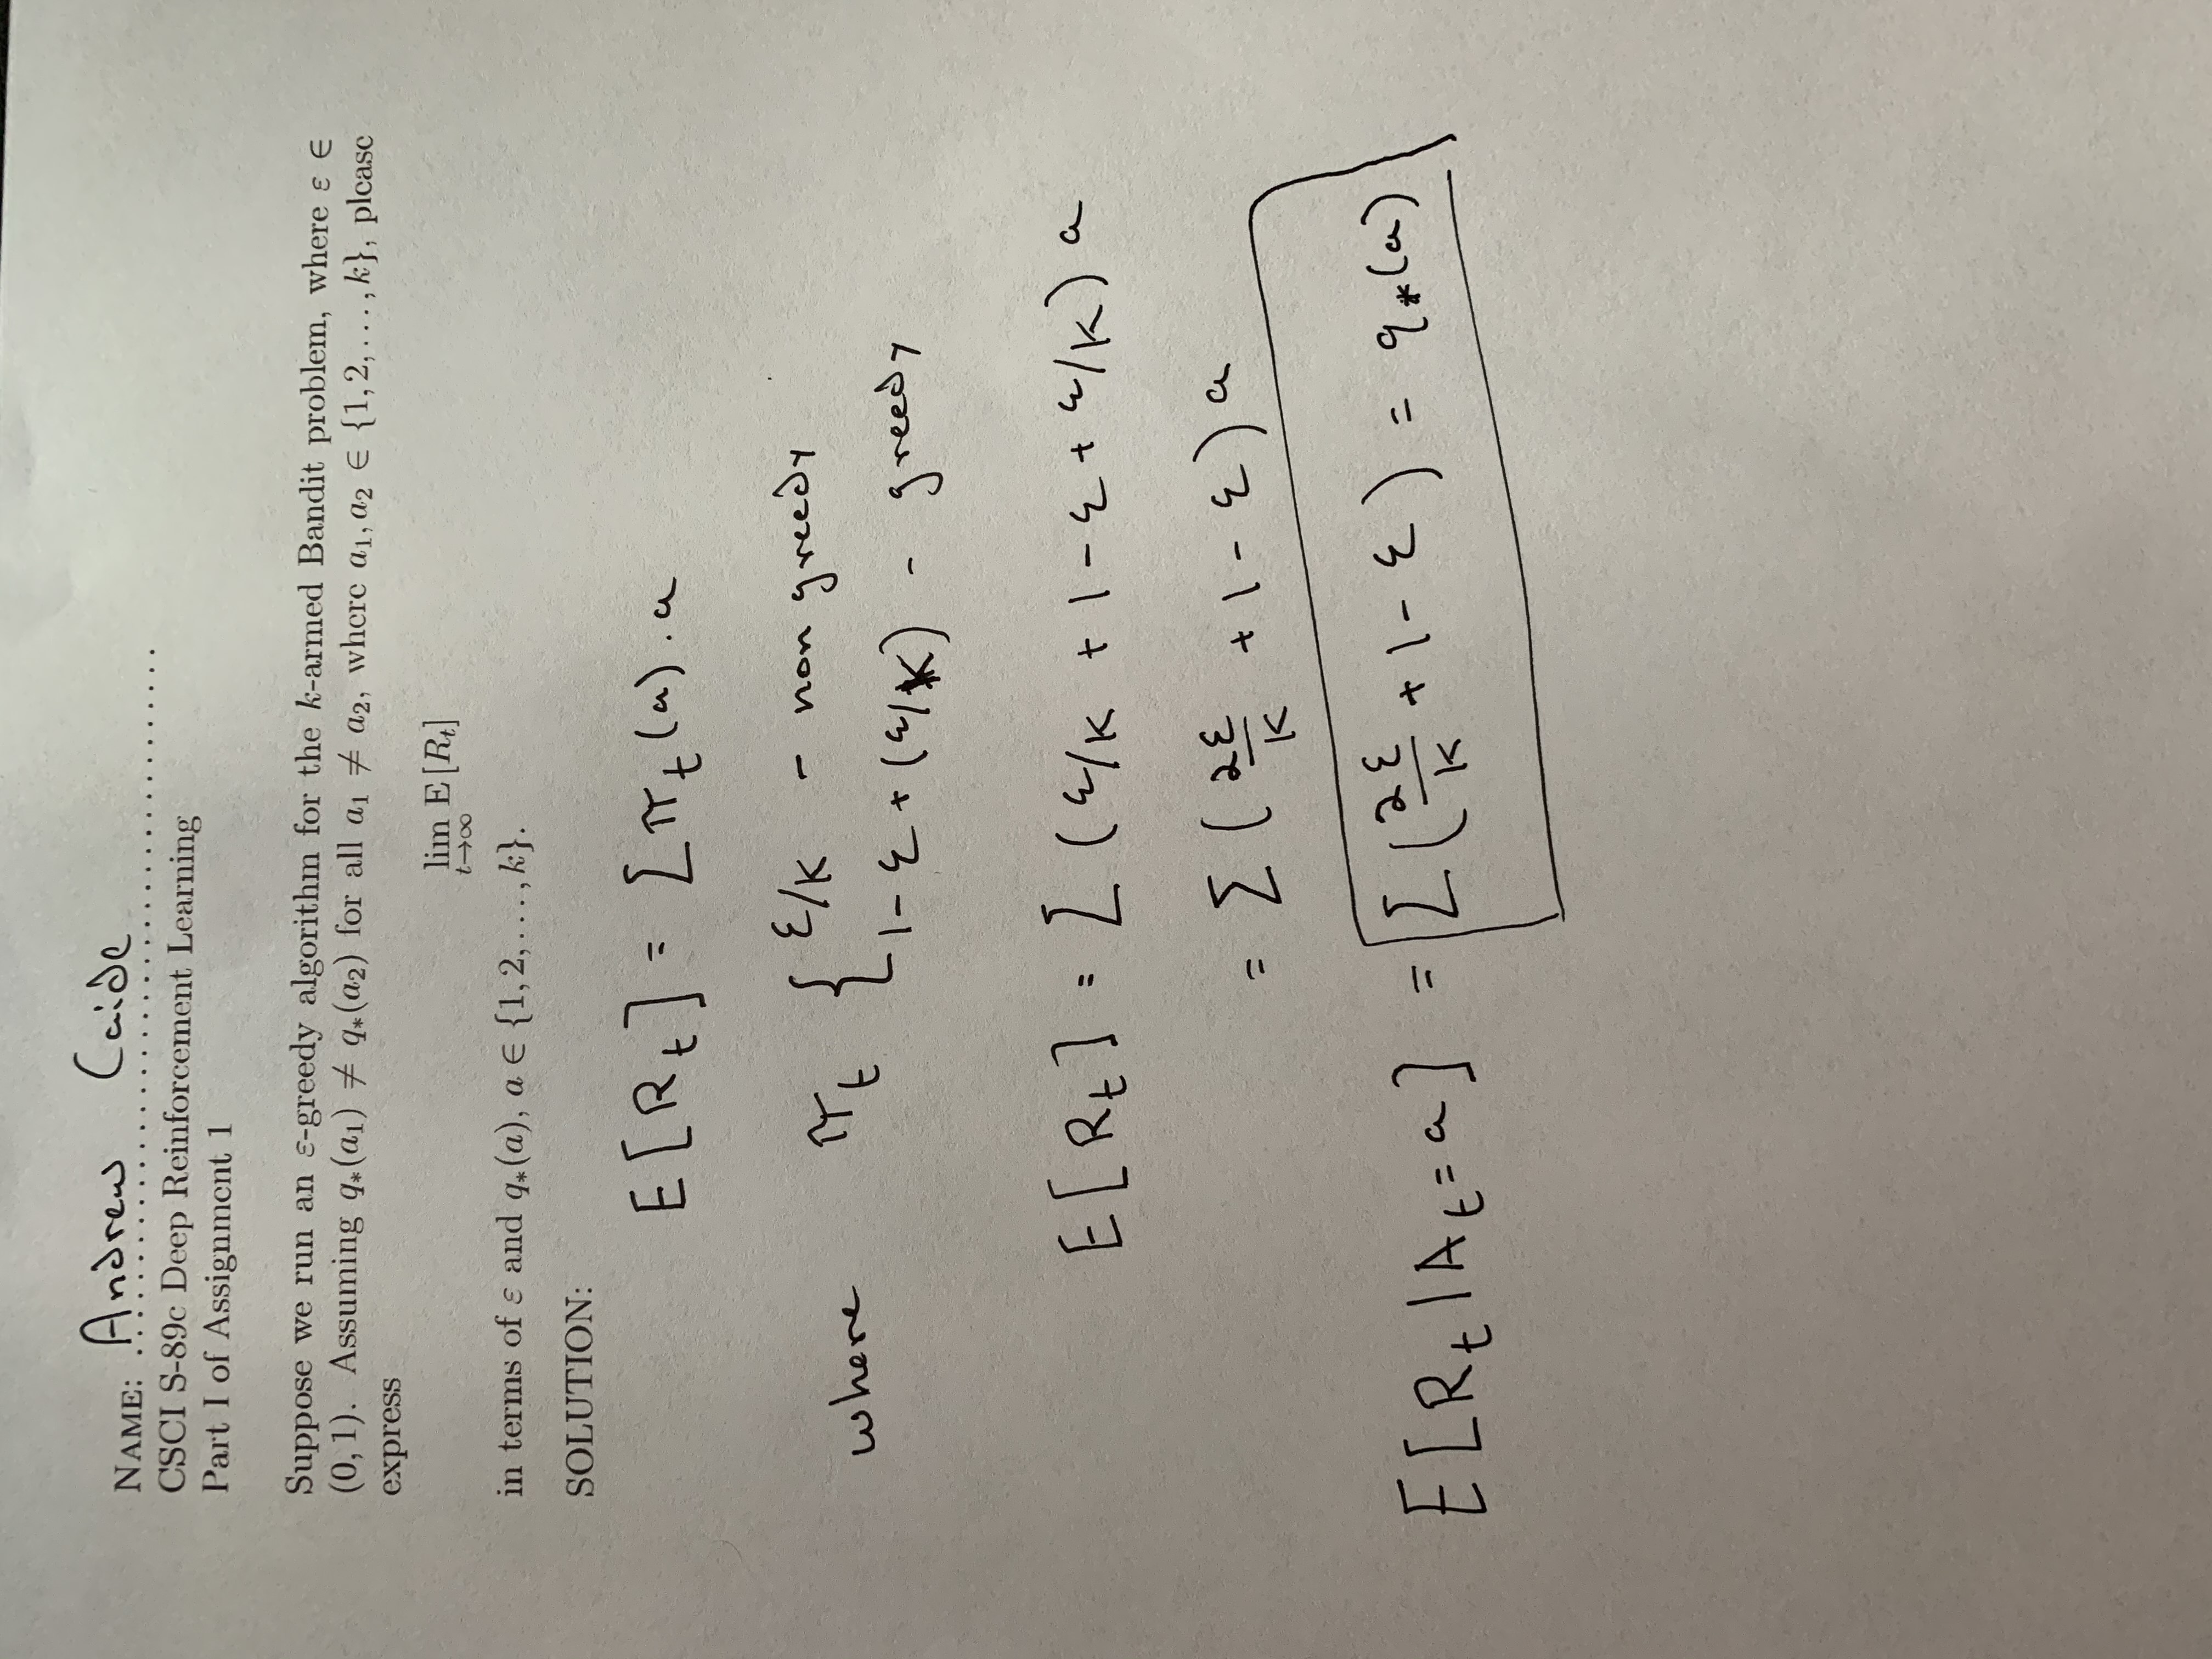 NAME: Andrew Caide
CSCI S-89c Deep Reinforcement Learning
Part I of Assignment 1
Suppose we run an ε-greedy algorithm for the k-armed Bandit problem, where ε ∈
(0, 1). Assuming q∗(a₁) ≠ q∗(a₂) for all a₁ ≠ a₂, where a₁, a₂ ∈ {1, 2, . . . , k}, please
express
lim E [Rₜ]
t→∞
in terms of ε and q∗(a), a ∈ {1, 2, . . . , k}.
SOLUTION:
E[Rₜ] = Σ πₜ(a) . a
where πₜ { ε/K - non greedy
1 - ε + (ε/K) - greedy
E[Rₜ] = Σ (ε/K + 1 - ε + ε/K) a
= Σ (2ε/K + 1 - ε) a
E[Rₜ | Aₜ = a] = Σ (2ε/K + 1 - ε) = q∗(a)